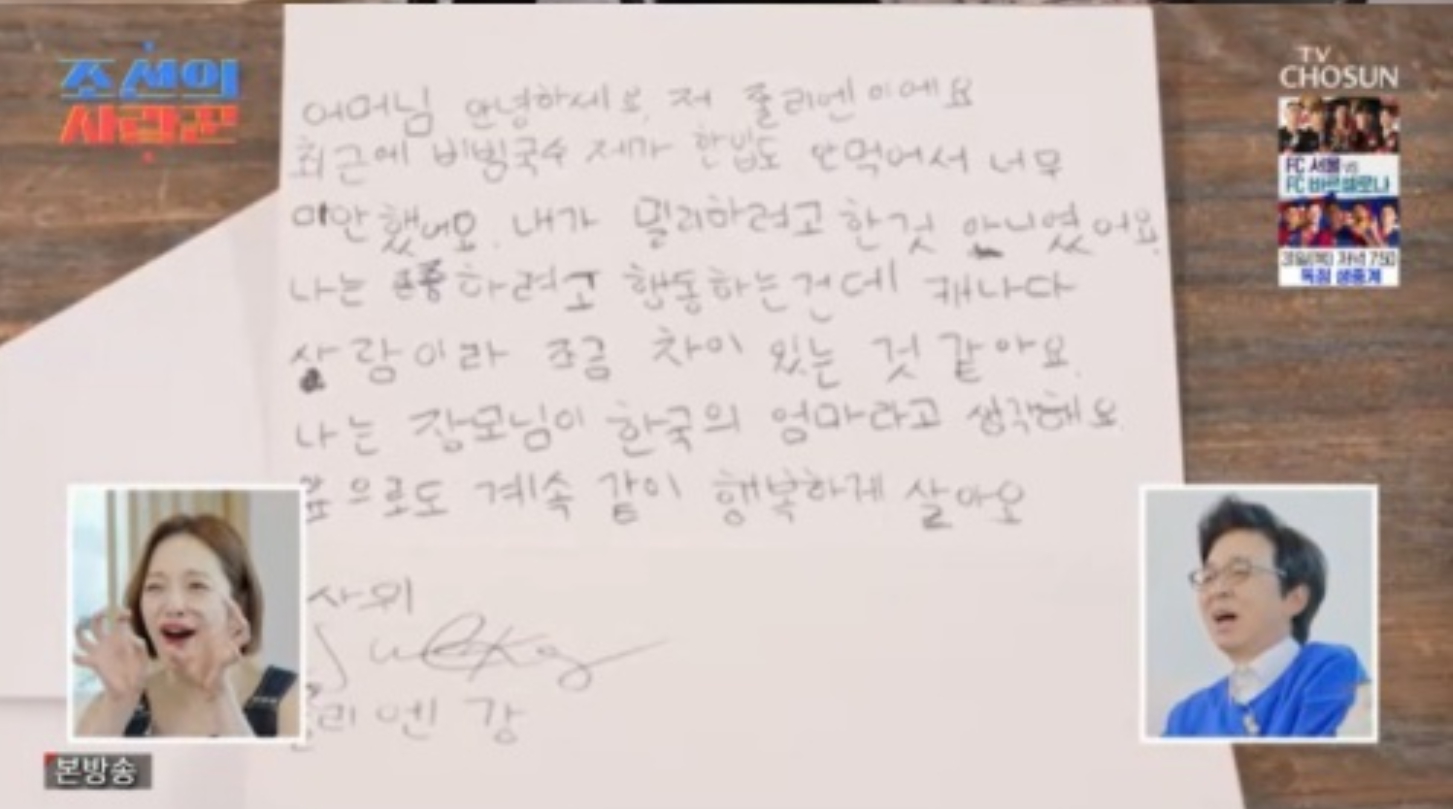 조선의
사랑꾼
TV
CHOSUN
FC 서울 vs
FC 바르셀로나
31일(목) 저녁 7:50
독점 생중계
어머님 안녕하세요, 저 줄리엔이에요
최근에 비빔국수 제가 한입도 안먹어서 너무
미안했어요. 내가 밀리하려고 한것 아니였어요.
나는 하려고 행동하는건데 캐나다
사람이라 조금 차이 있는 것 같아요.
나는 장모님이 한국의 엄마라고 생각해요.
앞으로도 계속 같이 행복하게 살아요
사위
리엔 강
본방송